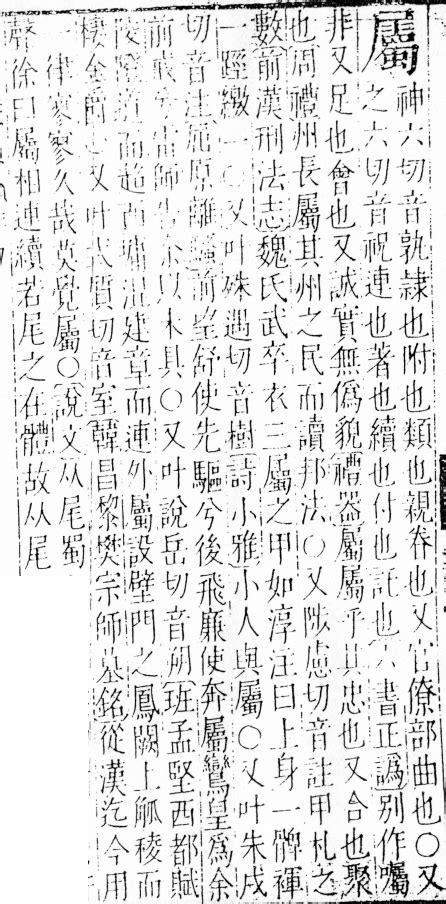 屬神六切音孰隷也附也類也親眷也又官僚部曲也○又
之六切音祝連也著也續也付也託也六書正譌別作囑
非又足也會也又誠實無僞貌禮器屬屬乎其忠也又合也聚
也周禮州長屬其州之民而讀邦法○又陟慮切音註甲札之
數前漢刑法志魏氏武卒衣三屬之甲如淳注曰上身一髀褌
一踁繳一○又叶殊遇切音樹詩小雅小人與屬○又叶朱戍
切音注屈原離騷前望舒使先驅兮後飛廉使奔屬鸞皇爲余
前戒兮雷師告余以未具○又叶說岳切音朔班孟堅西都賦
陵隥道而超西墉混建章而連外屬設璧門之鳳闕上觚稜而
棲金爵○又叶式質切音室韓昌黎樊宗師墓銘從漢迄今用
一律寥寥久哉莫覺屬○說文从尾蜀
聲徐曰屬相連續若尾之在體故从尾